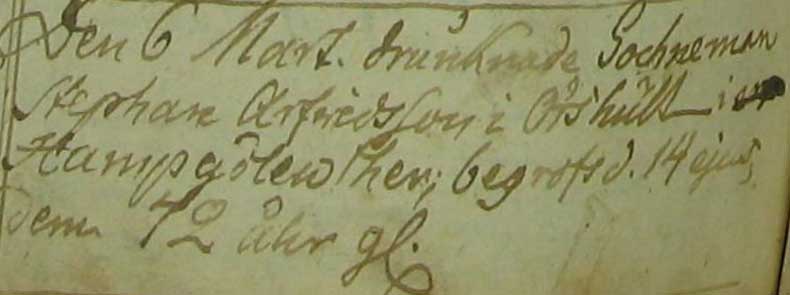 Den 6 Mart. drunknade Sochneman
Stephan Arfwedsson i Örshult i
Hampgölen ther; begrofs d. 14 ejus
dem 72 åhr gl.